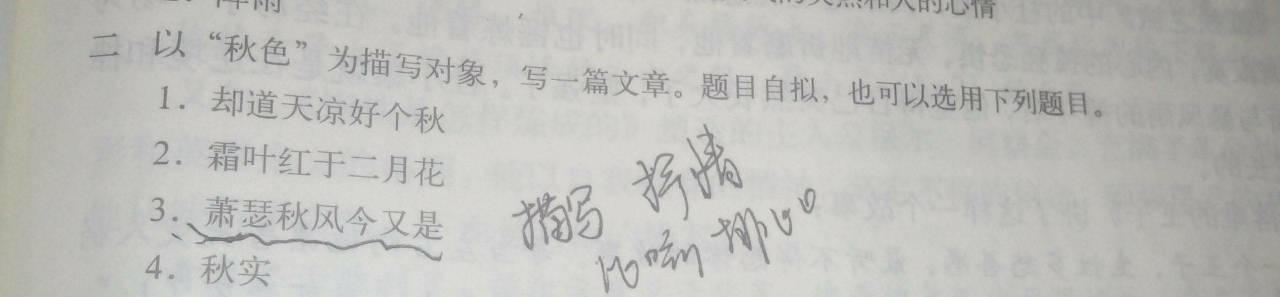 阵雨
二 以“秋色”为描写对象，写一篇文章。题目自拟，也可以选用下列题目。
1. 却道天凉好个秋
2. 霜叶红于二月花
3. 萧瑟秋风今又是
4. 秋实
描写 抒情
比喻 排比